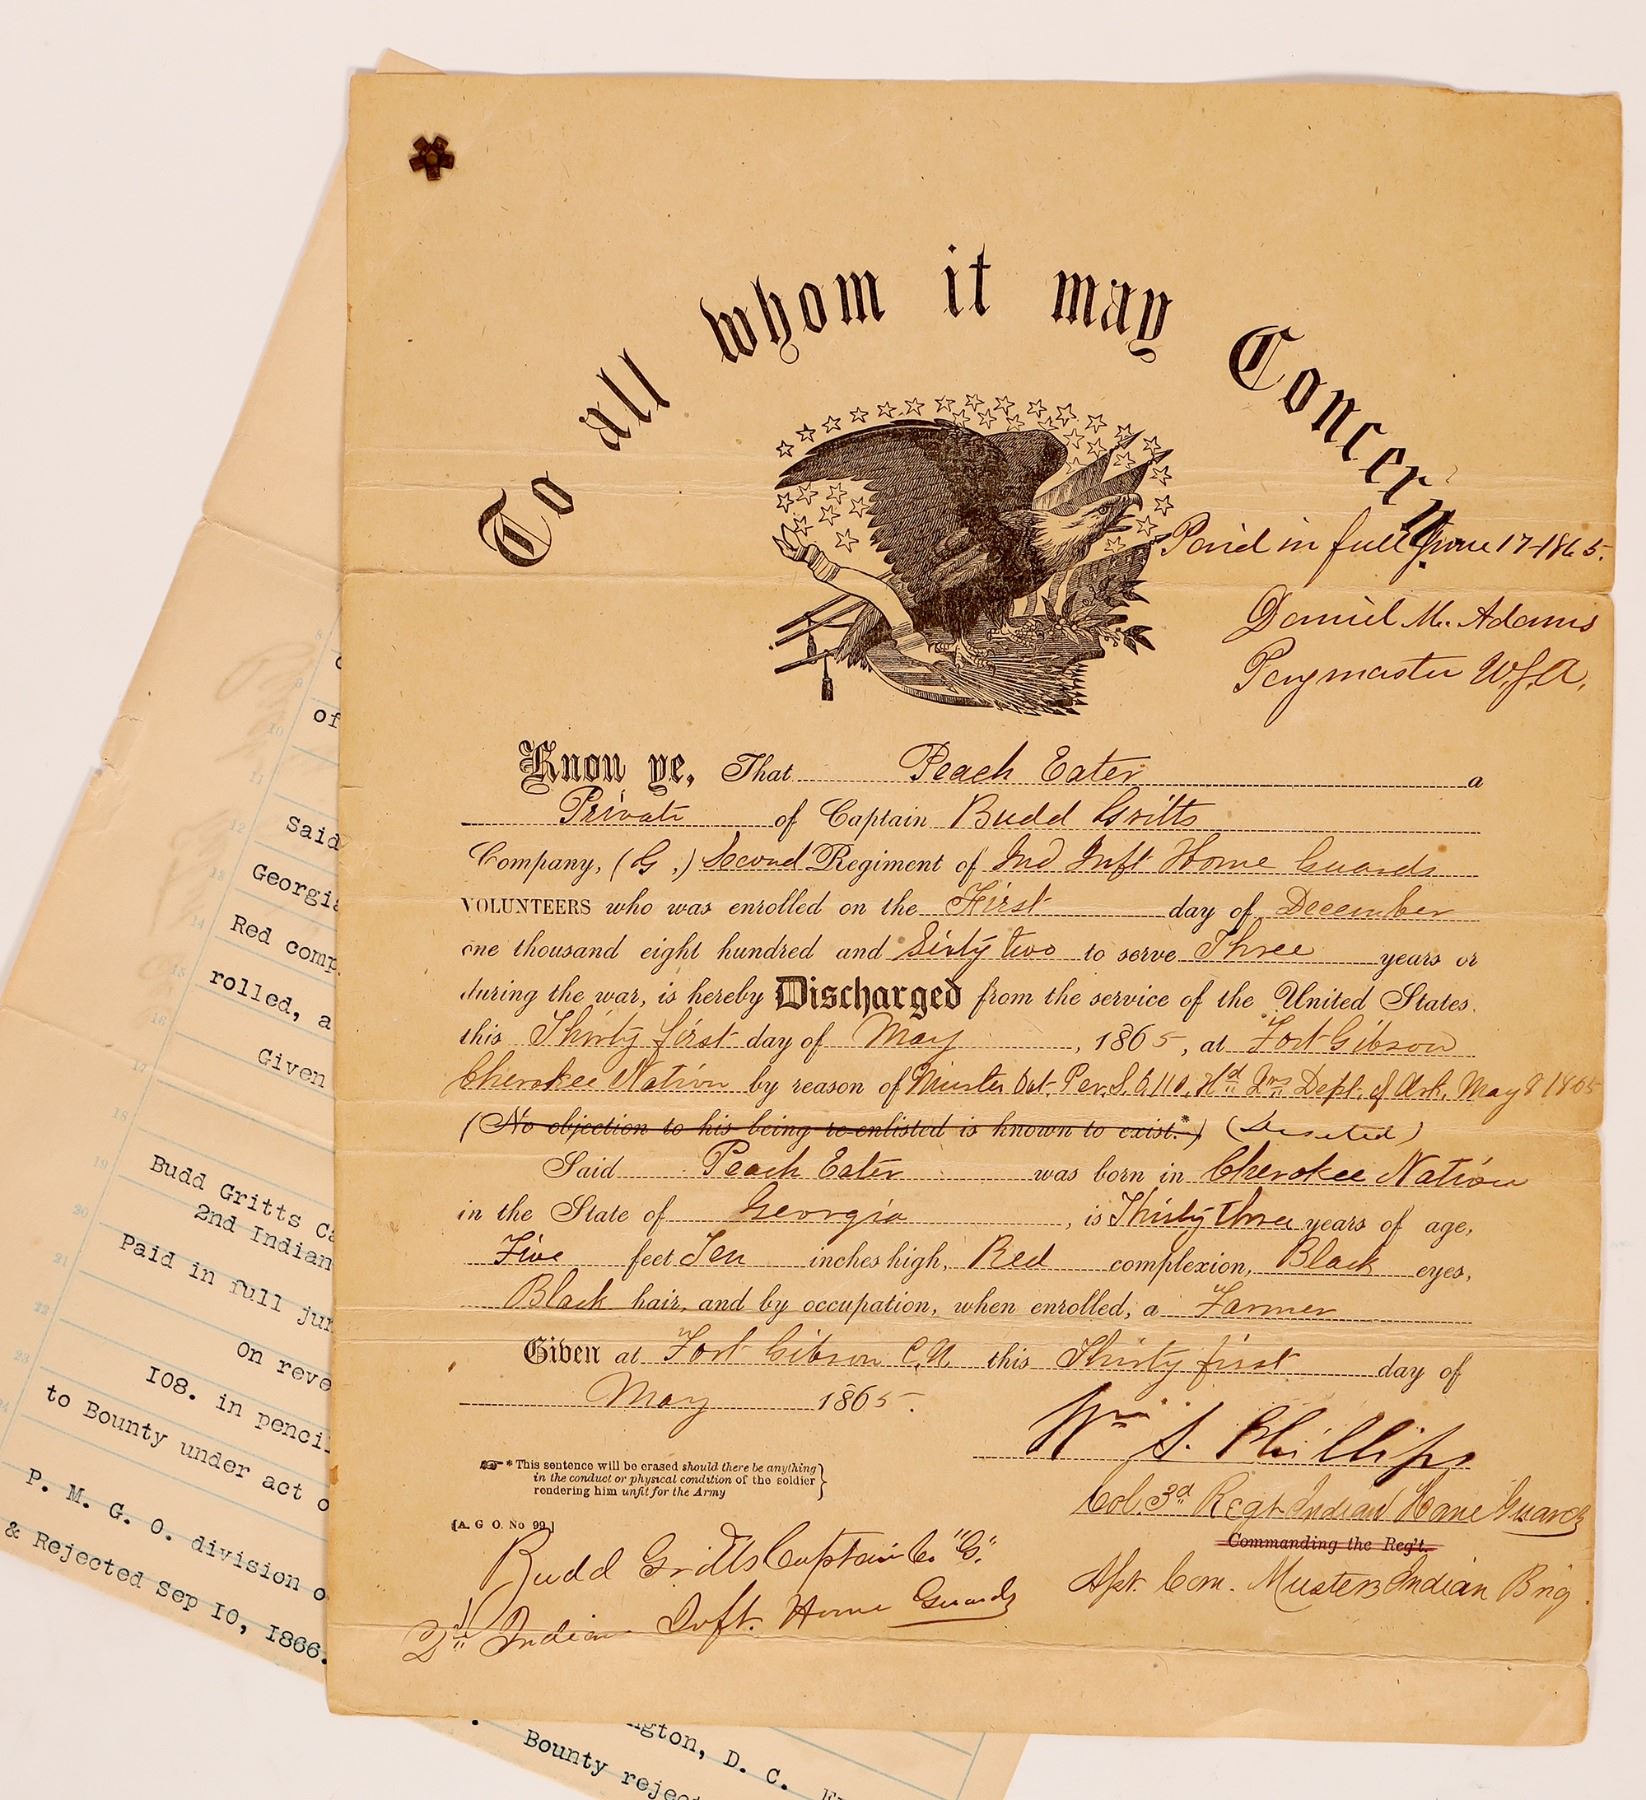 To all whom it may Concern
Paid in full June 17-1865.
Daniel M. Adams
Paymaster U.S.A.
Know ye, That Peach Eater a
Private of Captain Budd Gritts
Company, (G,) Second Regiment of Ind Inft Home Guards
VOLUNTEERS who was enrolled on the First day of December
one thousand eight hundred and Sixty two to serve Three years or
during the war, is hereby Discharged from the service of the United States.
this Thirty first day of May, 1865, at Fort Gibson
Cherokee Nation by reason of Muster Out Per. S.O. 110, Hd Qrs Dept. of Ark. May 8 1865
(No objection to his being re-enlisted is known to exist.*)
Said Peach Eater was born in Cherokee Nation
in the State of Georgia, is Thirty three years of age,
Five feet Ten inches high, Red complexion, Black eyes,
Black hair, and by occupation, when enrolled, a Farmer
Given at Fort Gibson C.N. this Thirty first day of
May 1865.
* This sentence will be erased should there be anything
in the conduct or physical condition of the soldier
rendering him unfit for the Army
[A. G. O. No 99.]
Wm S. Phillips
Col. 3d Regt Indian Home Guards
Commanding the Reg't.
Com. Musters Indian Brig
Budd Gritts Captain Co "G".
2d Indian Inft. Home Guards
8
9
of
10
11
12 Said
13 Georgia
14 Red comp
15 rolled, a
16
17 Given
18
19 Budd Gritts Ca
20 2nd Indian
21 Paid in full jun
22 On reve
23 108. in pencil
24 to Bounty under act o
P. M. G. O. division o
& Rejected Sep 10, 1866.
ngton, D. C.
Bounty reject